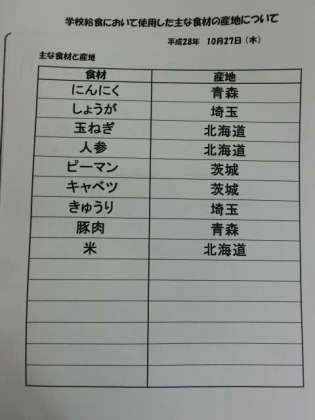 学校給食において使用した主な食材の産地について
平成28年 10月27日（木）
主な食材と産地
食材 産地
にんにく 青森
しょうが 埼玉
玉ねぎ 北海道
人参 北海道
ピーマン 茨城
キャベツ 茨城
きゅうり 埼玉
豚肉 青森
米 北海道